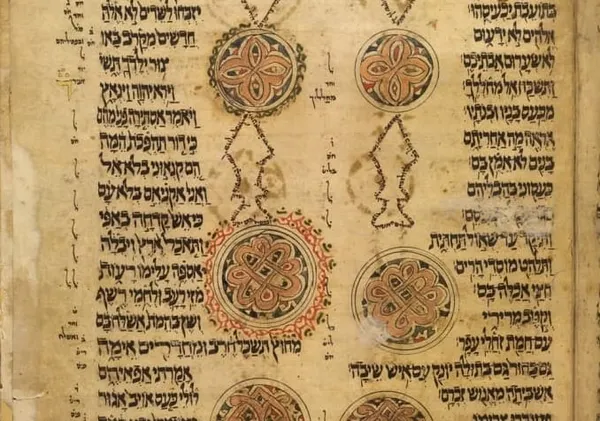 בתועבת יכעסהו
יזבחו לשדים לא אלה
אלהים לא ידעום
חדשים מקרב באו
לא שערום אבתיכם
צור ילדך תשי
ותשכח אל מחללך
וירא יהוה וינאץ
מכעס בניו ובנתיו
ויאמר אסתירה פני מהם
אראה מה אחריתם
כי דור תהפכת המה
בנים לא אמן בם
הם קנאוני בלא אל
כעסוני בהבליהם
ואני אקניאם בלא עם
כי אש קדחה באפי
ותיקד עד שאול תחתית
ותאכל ארץ ויבלה
ותלהט מוסדי הרים
אספה עלימו רעות
חצי אכלה בם
מזי רעב ולחמי רשף
וקטב מרירי
ושן בהמת אשלח בם
עם חמת זחלי עפר
מחוץ תשכל חרב ומחדרים אימה
גם בחור גם בתולה יונק עם איש שיבה
אמרתי אפאיהם
אשביתה מאנוש זכרם
לולי כעס אויב אגור